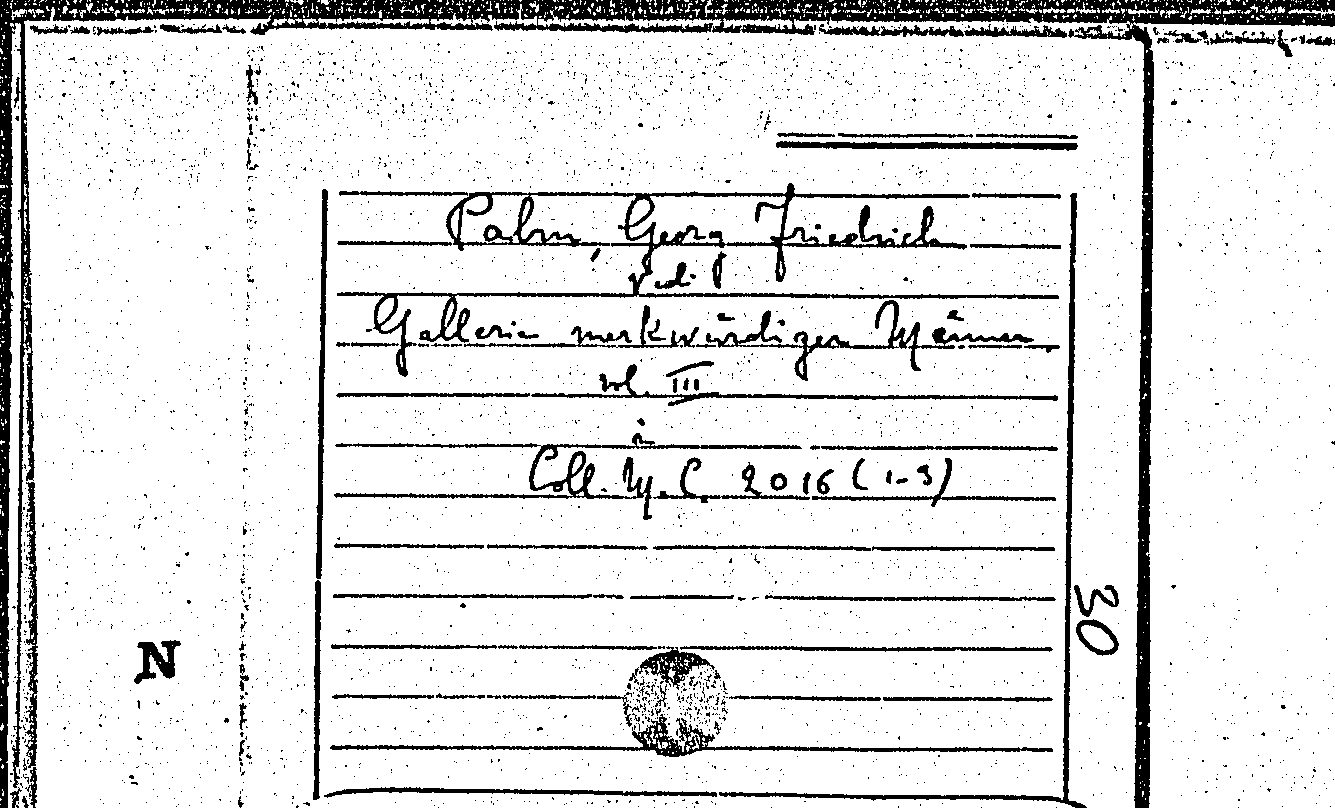 Palm, Georg Friedrich
vedi
Gallerie merkwürdiger Männer.
vol. III
in
Coll. M. C. 2016 (1-3)
30
N